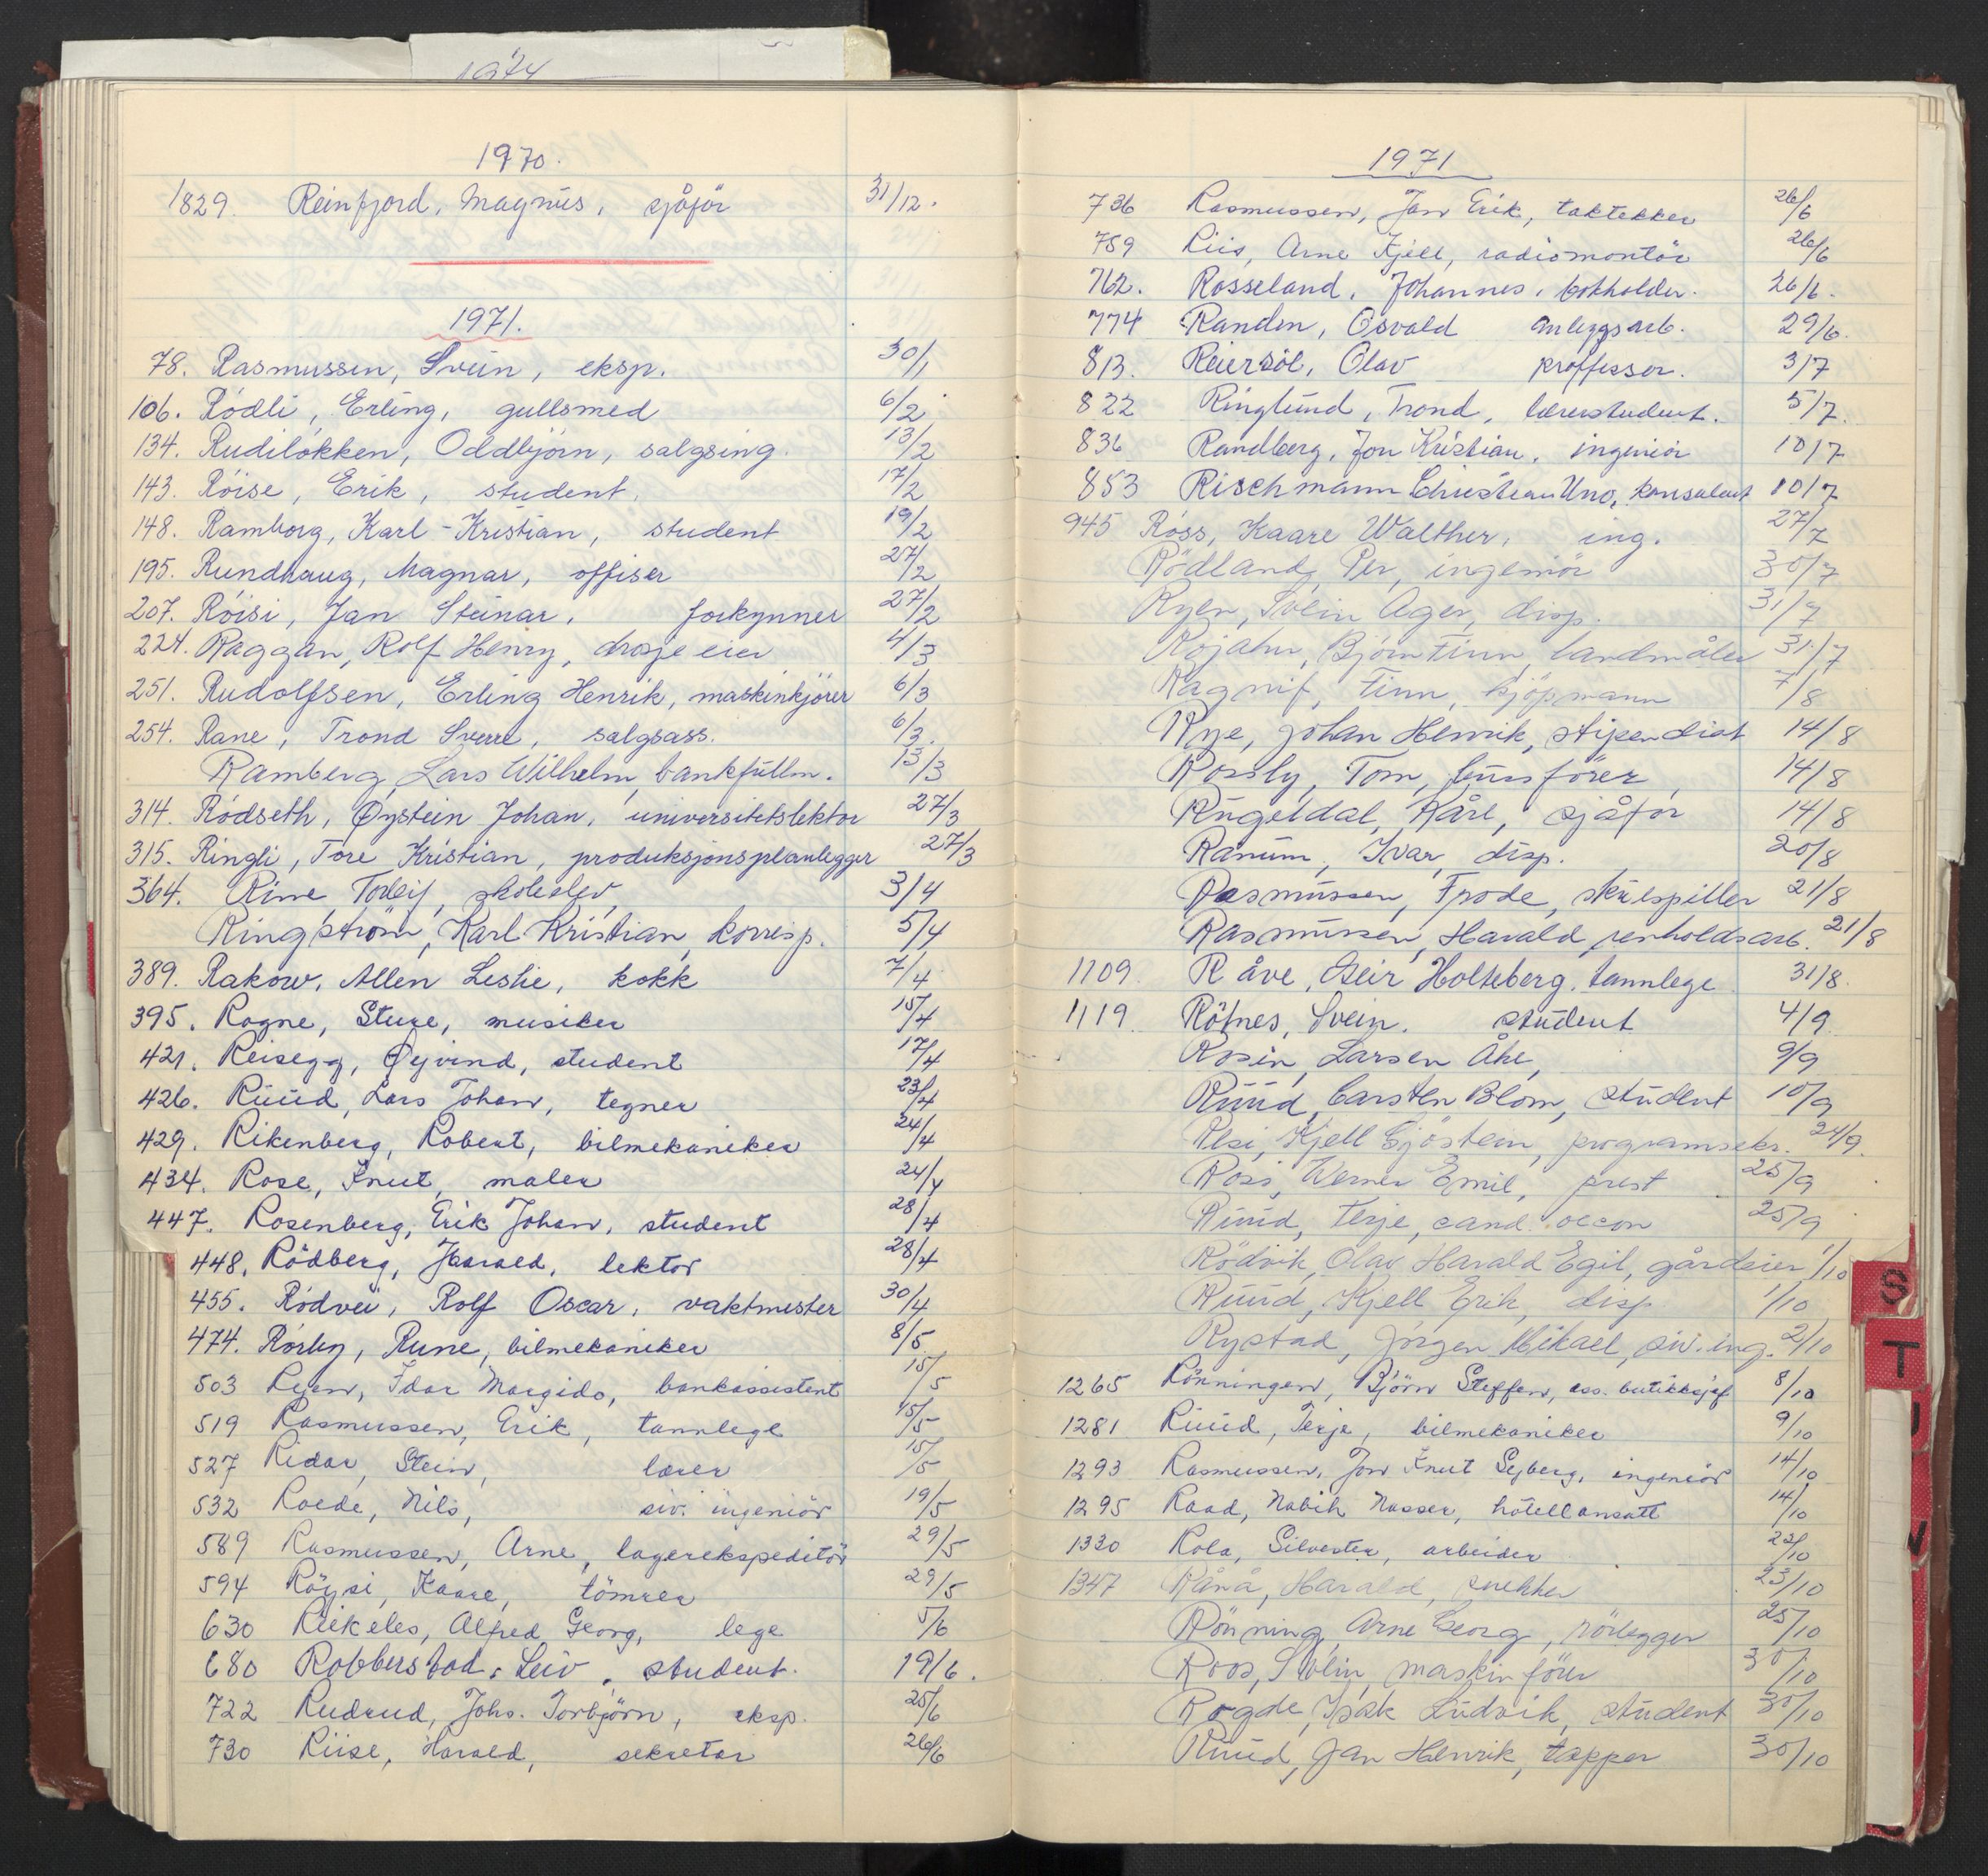 1974
1970.
1829 Reinfjord, Magnus, sjåför 31/12.
1971.
78. Rasmussen, Svein, eksp. 30/1
106. Rödli, Erling, gullsmed 6/2
134. Rudilökken, Oddbjörn, salgsing. 13/2
143. Röise, Erik, student. 17/2
148. Ramborg, Karl-Kristian, student 19/2
195. Rundhaug, Magnar, offiser 27/2
207. Röisi, Jan Steinar, forkynner 27/2
224. Raggan, Rolf Henry, drosjeeier 4/3
251. Rudolfsen, Erling Henrik, maskinkjörer 6/3
254. Rane, Trond Sverre, salgsass. 6/3.
Ramberg, Lars Wilhelm, bankfullm. 13/3
314. Rödseth, Øystein Johan, universitetslektor 27/3
315. Ringli, Tore Kristian, produksjonsplanlegger 27/3
364. Rime Torleif, skoleelev 3/4
Ringström, Karl Kristian, korresp. 5/4
389. Rakow, Allen Leslie, kokk 7/4
395. Rogne, Sture, musiker 15/4
421. Reisegg, Øyvind, student 17/4
426. Ruud, Lars Johan, tegner 23/4
429. Rikenberg, Robert, bilmekaniker 24/4
434. Rose, Knut, maler 24/4
447. Rosenberg, Erik Johan, student 28/4
448. Rödberg, Harald, lektor 28/4
455. Rödvei, Rolf Oscar, vaktmester 30/4
474. Rörby, Rune, bilmekaniker 8/5
503 Ryen, Idar Margido, bankassistent 15/5
519 Rasmussen, Erik, tannlege 15/5
527 Ridar, Stein, lærer 15/5
532 Roede, Nils, siv. ingeniör 19/5
589 Rasmussen, Arne, lagerekspeditör 29/5
594 Röysi, Kaare, tömrer 29/5
630 Riekeles, Alfred Georg, lege 5/6
680 Robberstad, Leiv, student. 19/6.
722 Rudrud, Johs. Torbjörn, eksp. 25/6
730 Riise, Harald, sekretær 26/6
1971
736 Rasmussen, Jan Erik, taktekker 26/6
759 Riis, Arne Kjell, radiomontör 26/6
762. Rosseland, Johannes, bokholder. 26/6.
774 Randen, Osvald anleggsarb. 29/6.
813. Reiersöl, Olav proffessor. 3/7
822 Ringlund, Trond, lærerstudent. 5/7.
836 Randberg, Jon Kristian, ingeniör 10/7
853 Rischmann Christian Uno, konsulent 10/7
945 Röss, Kaare Walther, ing. 27/7
Rödland, Per, ingeniör 30/7
Ryen, Svein Ager, disp. 31/7
Rojahn, Björn Finn, landmåler 31/7
Ragnif, Finn, kjöpmann 7/8
Rye, Johan Henrik, stipendiat 14/8
Rossly, Tom, bussförer 14/8
Rugeldal, Kåre, sjåför 14/8
Ranum, Ivar, disp. 20/8
Rasmussen, Frode, skuespiller 21/8
Rasmussen, Harald, renholdsarb. 21/8
1109. Råve, Geir Holteberg, tannlege 31/8.
1119 Rötnes, Svein. student 4/9
Rosin, Larsen Åhe, 9/9
Ruud, Carsten Blom, student 10/9
Kjell Gjöstein, programsekr. 24/9.
Ross, Werner Emil, prest 25/9
Ruud, Terje, cand. oecon 25/9
Rödvik, Olav Harald Egil, gårdeier 1/10
Ruud, Kjell Erik, disp. 1/10
Rystad, Jörgen Mikael, siv.ing. 2/10
1265 Rönningen, Björn Steffen, ass. butikksjef 8/10
1281 Ruud, Terje, bilmekaniker 9/10
1293 Rasmussen, Jon Knut Seyberg, ingeniör 14/10
1295 Raad, Nabih Nasser, hotellansatt 14/10
1330 Rola, Silvester, arbeider 22/10
1347 Rånå, Harald, snekker 23/10
Rönning, Arne Georg, rörlegger 25/10
Roos, Svein, maskinförer 30/10
Rogde, Isak Ludvik, student 30/10
Ruud, Jan Henrik, tapper 30/10
S
T